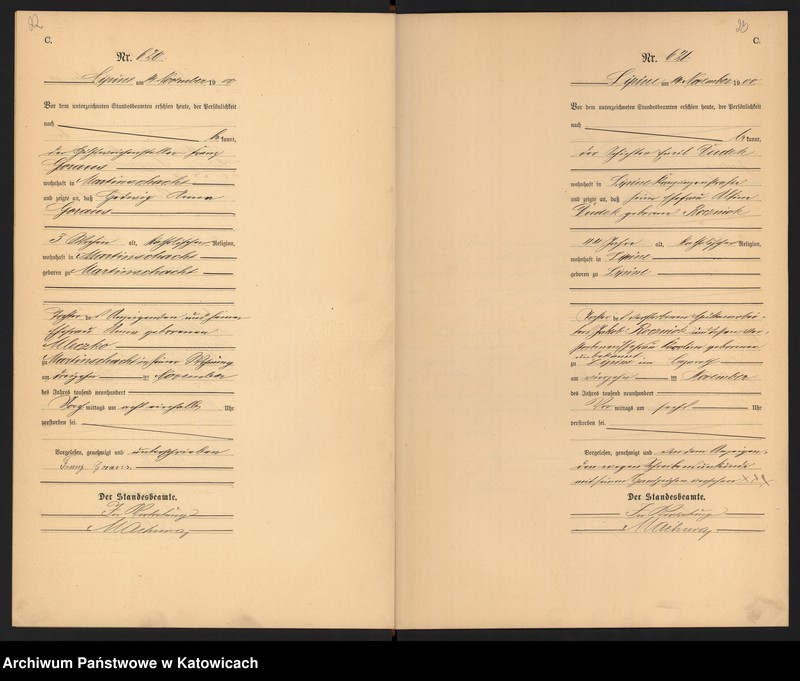 C.
Nr. 620.
Lipine am 14. November 1900
Vor dem unterzeichneten Standesbeamten erschien heute, der Persönlichkeit
nach bekannt,
der Franz
Gorans
wohnhaft in Martinschacht
und zeigte an, daß Hedwig Anna
Gorans
3 Wochen alt, katholischer Religion,
wohnhaft in Martinschacht
geboren zu Martinschacht
Tochter des Anzeigenden und seiner
Ehefrau Anna geborenen
Mleczko
zu Martinschacht in seiner Wohnung
am dreizehn ten November
des Jahres tausend neunhundert
mittags um acht Uhr
verstorben sei.
Vorgelesen, genehmigt und unterschrieben
Franz Gorans.
Der Standesbeamte.
In Vertretung
Machura
25
C.
Nr. 621.
Lipine am 14. November 1900
Vor dem unterzeichneten Standesbeamten erschien heute, der Persönlichkeit
nach bekannt,
der Emil Dudek
wohnhaft in Lipine
und zeigte an, daß seine Ehefrau
Dudek geborene Roczniok
44 Jahre alt, katholischer Religion,
wohnhaft in Lipine
geboren zu Lipine
Tochter des verstorbenen
Jakob Roczniok und dessen
Ehefrau geborene
unbekannt
zu Lipine im Lazareth
am vierzehn ten November
des Jahres tausend neunhundert
Vor mittags um sechs Uhr
verstorben sei.
Vorgelesen, genehmigt und von dem Anzeigen-
den wegen Schreibensunkunde
mit seinem Handzeichen versehen XXX
Der Standesbeamte.
In Vertretung
Machura
Archiwum Państwowe w Katowicach